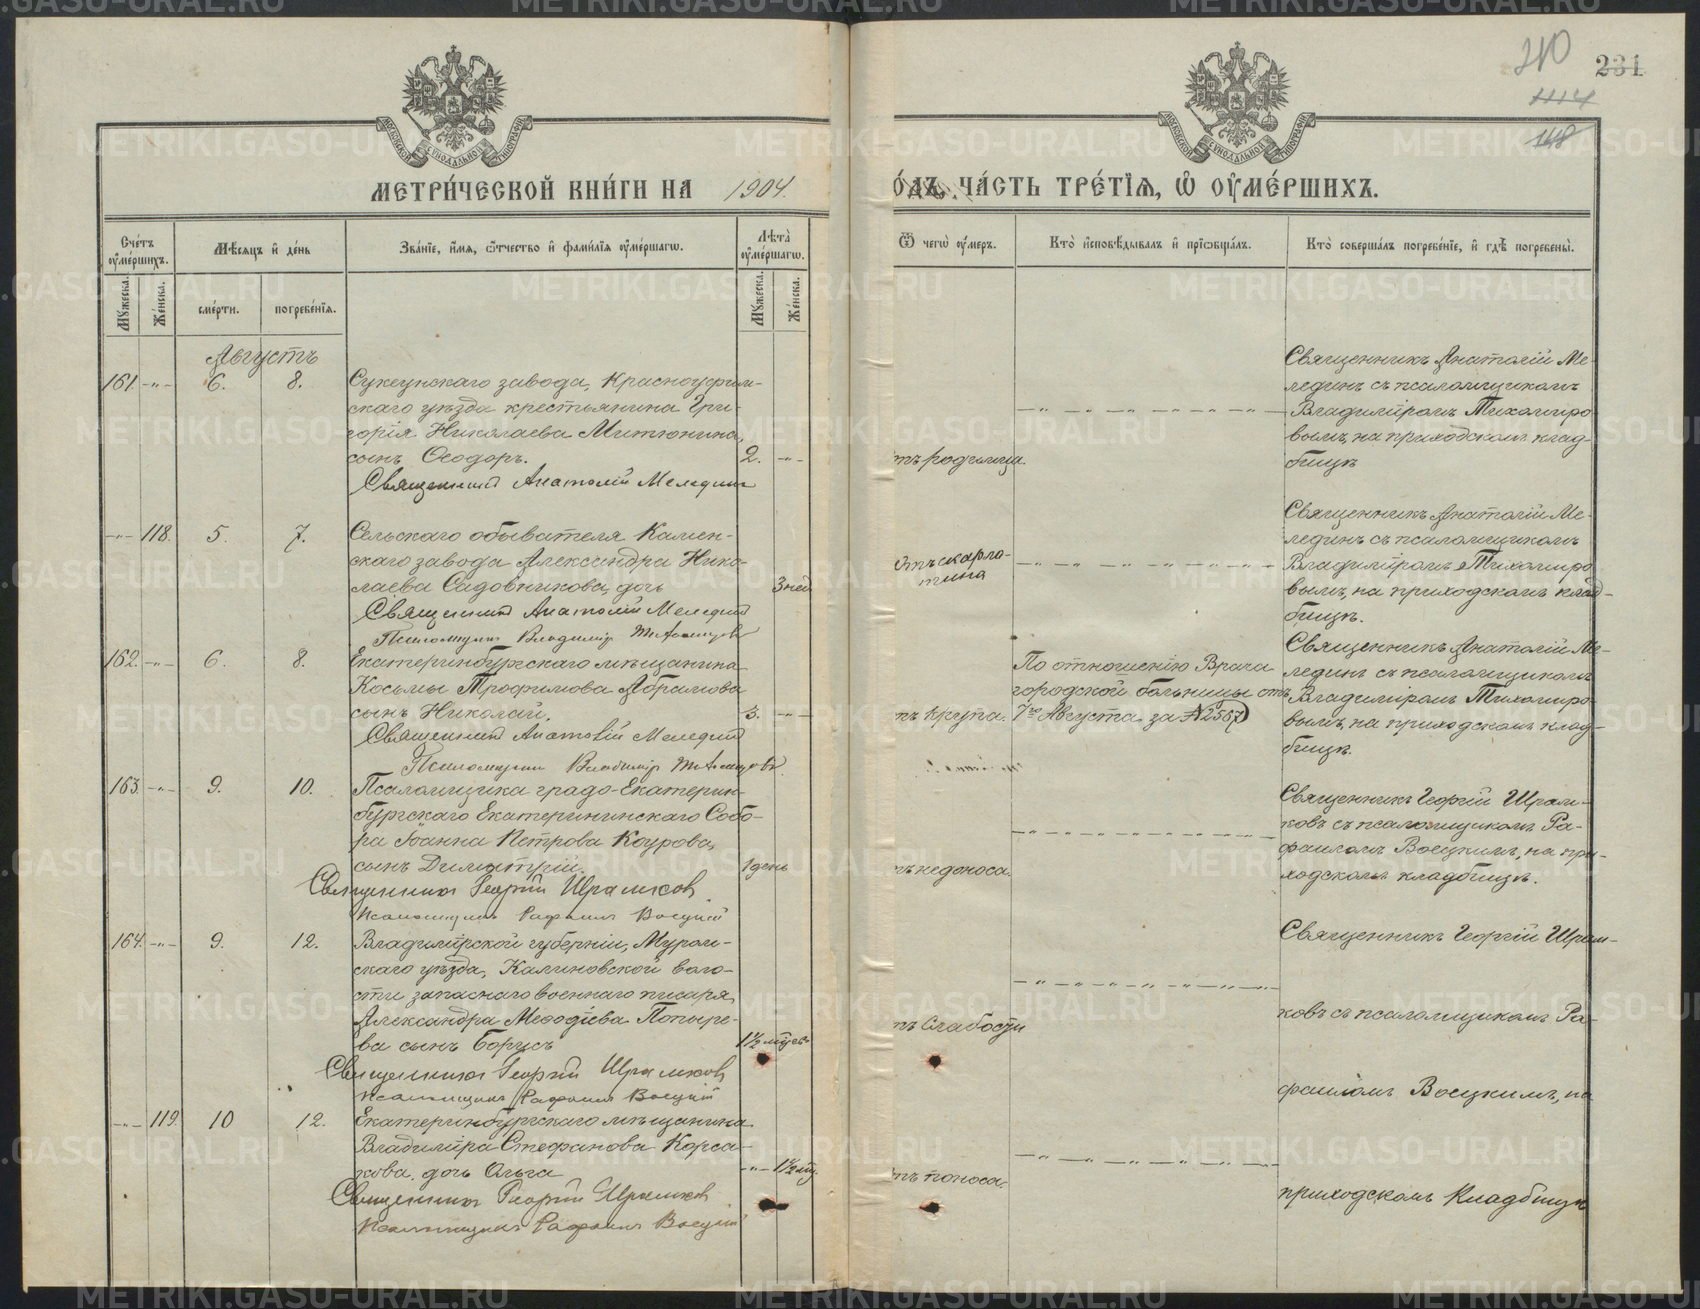 210
231
1114
148
МЕТРИ́ЧЕСКОЙ КНИ́ГИ НА 1904.
О́ДЪ, ЧА́СТЬ ТРЕ́ТІЯ, Ѿ ОУМЕ́РШИХЪ.
Счётъ оумёршихъ.
Мѣсяцъ и де́нь
Зва́ніе, и́мя, ѻ҆́тчество и фами́лія оуме́ршагѡ.
Лѣта̀ оуме́ршагѡ.
Ѿ чегѡ̀ оу́меръ.
Кто̀ и҆сповѣ́дывалъ и҆ прїѡбща́лъ.
Кто̀ соверша́лъ погребе́ніе, и҆ гдѣ̀ погребены̀.
Мꙋ́жеска.
Же́нска.
сме́рти.
погребе́нія.
Мꙋ́жеска.
Же́нска.
Августъ
161 -"- 6. 8.
Суксунскаго завода, Красноуфим-
скаго уѣзда крестьянина Гри-
горія Николаева Митюнина,
сынъ Ѳеодоръ. 2. -"-
Священникъ Анатолій Мелединъ
тъ родимца.
Священникъ Анатолій Ме-
лединъ съ псаломщикомъ
Владиміромъ Тихомиро-
вымъ, на приходскомъ клад-
бищѣ
-"- 118. 5. 7.
Сельскаго обывателя Камен-
скаго завода Александра Нико-
лаева Садовникова, дочь 3 нед
Священникъ Анатолій Мелединъ
Псаломщикъ Владиміръ Тихомировъ
Отъ скарла-
тина
Священникъ Анатолій Ме-
лединъ съ псаломщикомъ
Владиміромъ Тихомиро
вымъ, на приходскомъ клад-
бищѣ.
162. -"- 6. 8.
Екатеринбургскаго мѣщанина
Косьмы Трофимова Абрамова
сынъ Николай. 3. -"-
Священникъ Анатолій Мелединъ
Псаломщикъ Владиміръ Тихомировъ.
тъ крупа.
По отношенію Врача
городской больницы отъ
7го Августа за № 2567
Священникъ Анатолій Ме-
лединъ съ псаломщикомъ
Владиміромъ Тихомиро-
вымъ, на приходскомъ клад-
бищѣ.
163. -"- 9. 10.
Псаломщика градо-Екатерин-
бургскаго Екатерининскаго Собо-
ра Іоанна Петрова Коурова,
сынъ Димитрій. 1 день
Священникъ Георгій Шрамковъ
Псаломщикъ Рафаилъ Воецкій
тъ недоноса.
Священникъ Георгій Шрам-
ковъ съ псаломщикомъ Ра-
фаиломъ Воецкимъ, на при-
ходскомъ кладбищѣ.
164. -"- 9. 12.
Владимірской губерніи, Муром-
скаго уѣзда, Калиновской воло-
сти запаснаго военнаго писаря,
Александра Меѳодіева Попыре-
ва сынъ Борисъ 1½ мѣс.
Священникъ Георгій Шрамковъ
Псаломщикъ Рафаилъ Воецкій
тъ слабости
Священникъ Георгій Шрам-
ковъ съ псаломщикомъ Ра-
фаиломъ Воецкимъ, на
приходскомъ кладбищѣ
-"- 119. 10 12.
Екатеринбургскаго мѣщанина
Владиміра Стефанова Корса-
кова, дочь Ольга -"-
Священникъ Георгій Шрамковъ
Псаломщикъ Рафаилъ Воецкій
тъ поноса.
METRIKI.GASO-URAL.RU